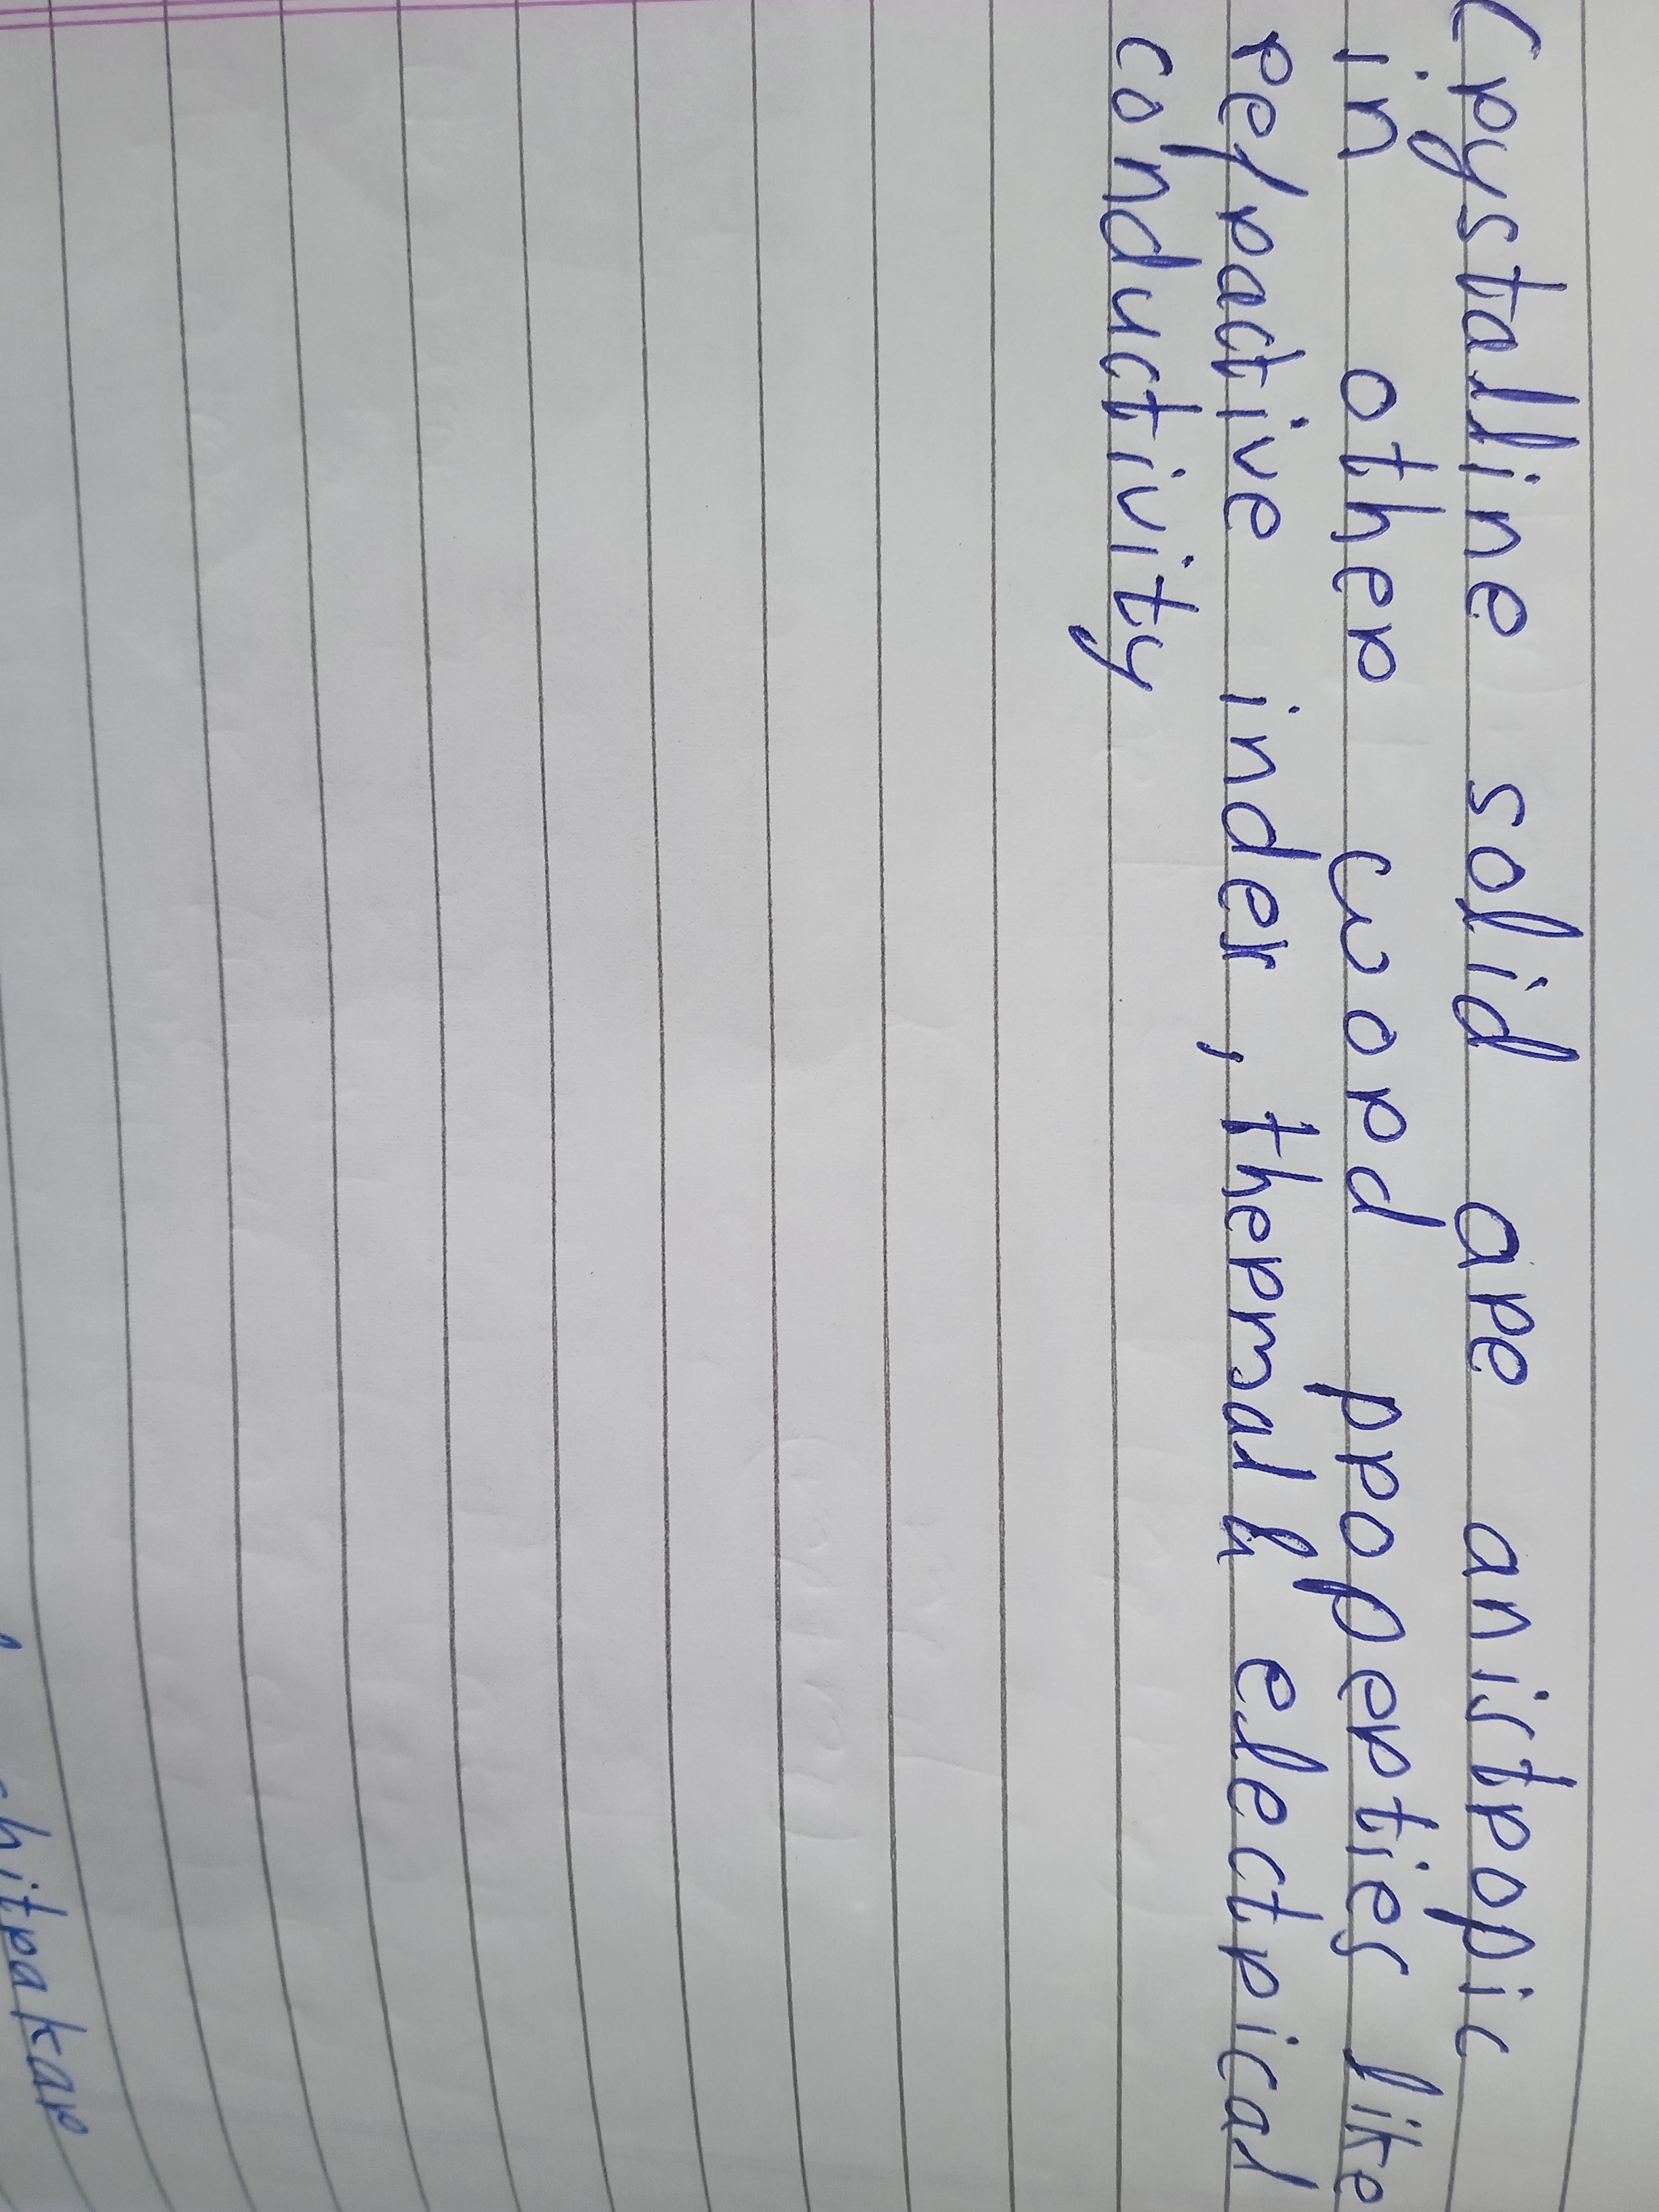 Crystalline solid are anistropic
in other word properties like
refractive index, thermal & electrical
conductivity
chitrakar